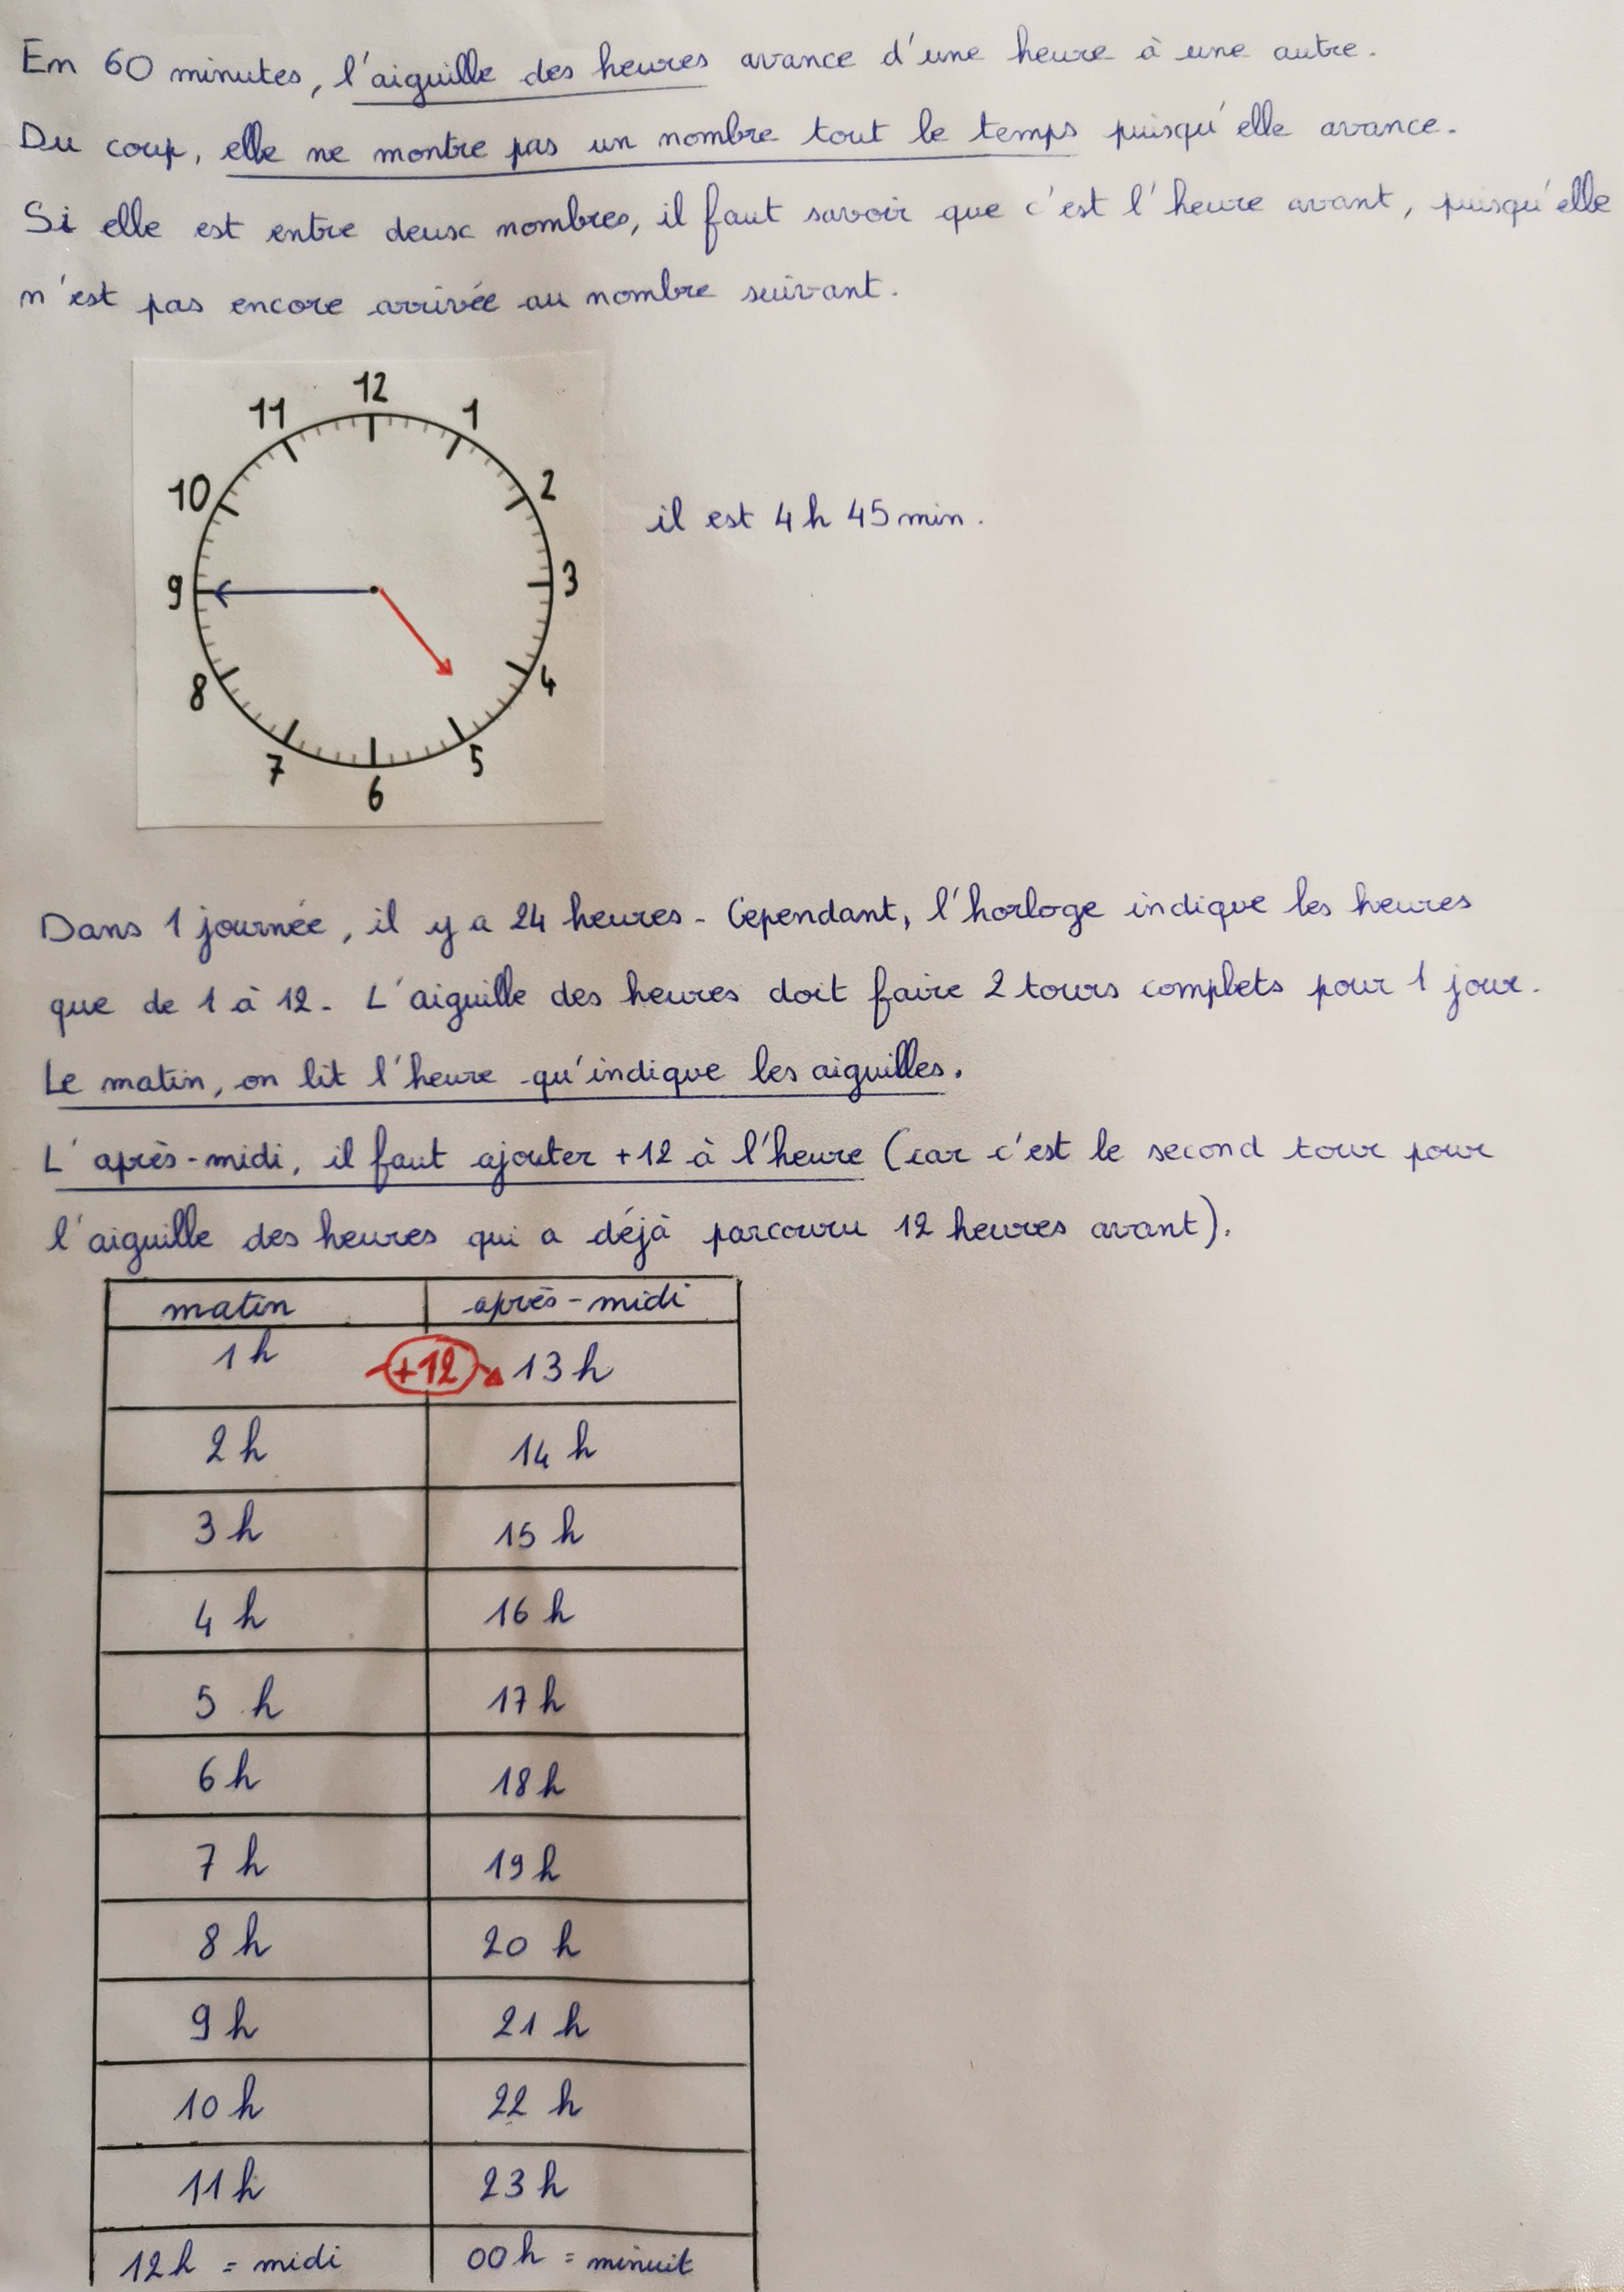 En 60 minutes, l'aiguille des heures avance d'une heure à une autre.
Du coup, elle ne montre pas un nombre tout le temps puisqu'elle avance.
Si elle est entre deux nombres, il faut savoir que c'est l'heure avant, puisqu'elle
n'est pas encore arrivée au nombre suivant.
12
11 1
10 2
9 3
8 4
7 5
6
il est 4 h 45 min.
Dans 1 journée, il y a 24 heures. Cependant, l'horloge indique les heures
que de 1 à 12. L'aiguille des heures doit faire 2 tours complets pour 1 jour.
Le matin, on lit l'heure qu'indique les aiguilles.
L'après-midi, il faut ajouter +12 à l'heure (car c'est le second tour pour
l'aiguille des heures qui a déjà parcouru 12 heures avant).
matin après-midi
1 h +12 13 h
2 h 14 h
3 h 15 h
4 h 16 h
5 h 17 h
6 h 18 h
7 h 19 h
8 h 20 h
9 h 21 h
10 h 22 h
11 h 23 h
12 h = midi 00 h = minuit